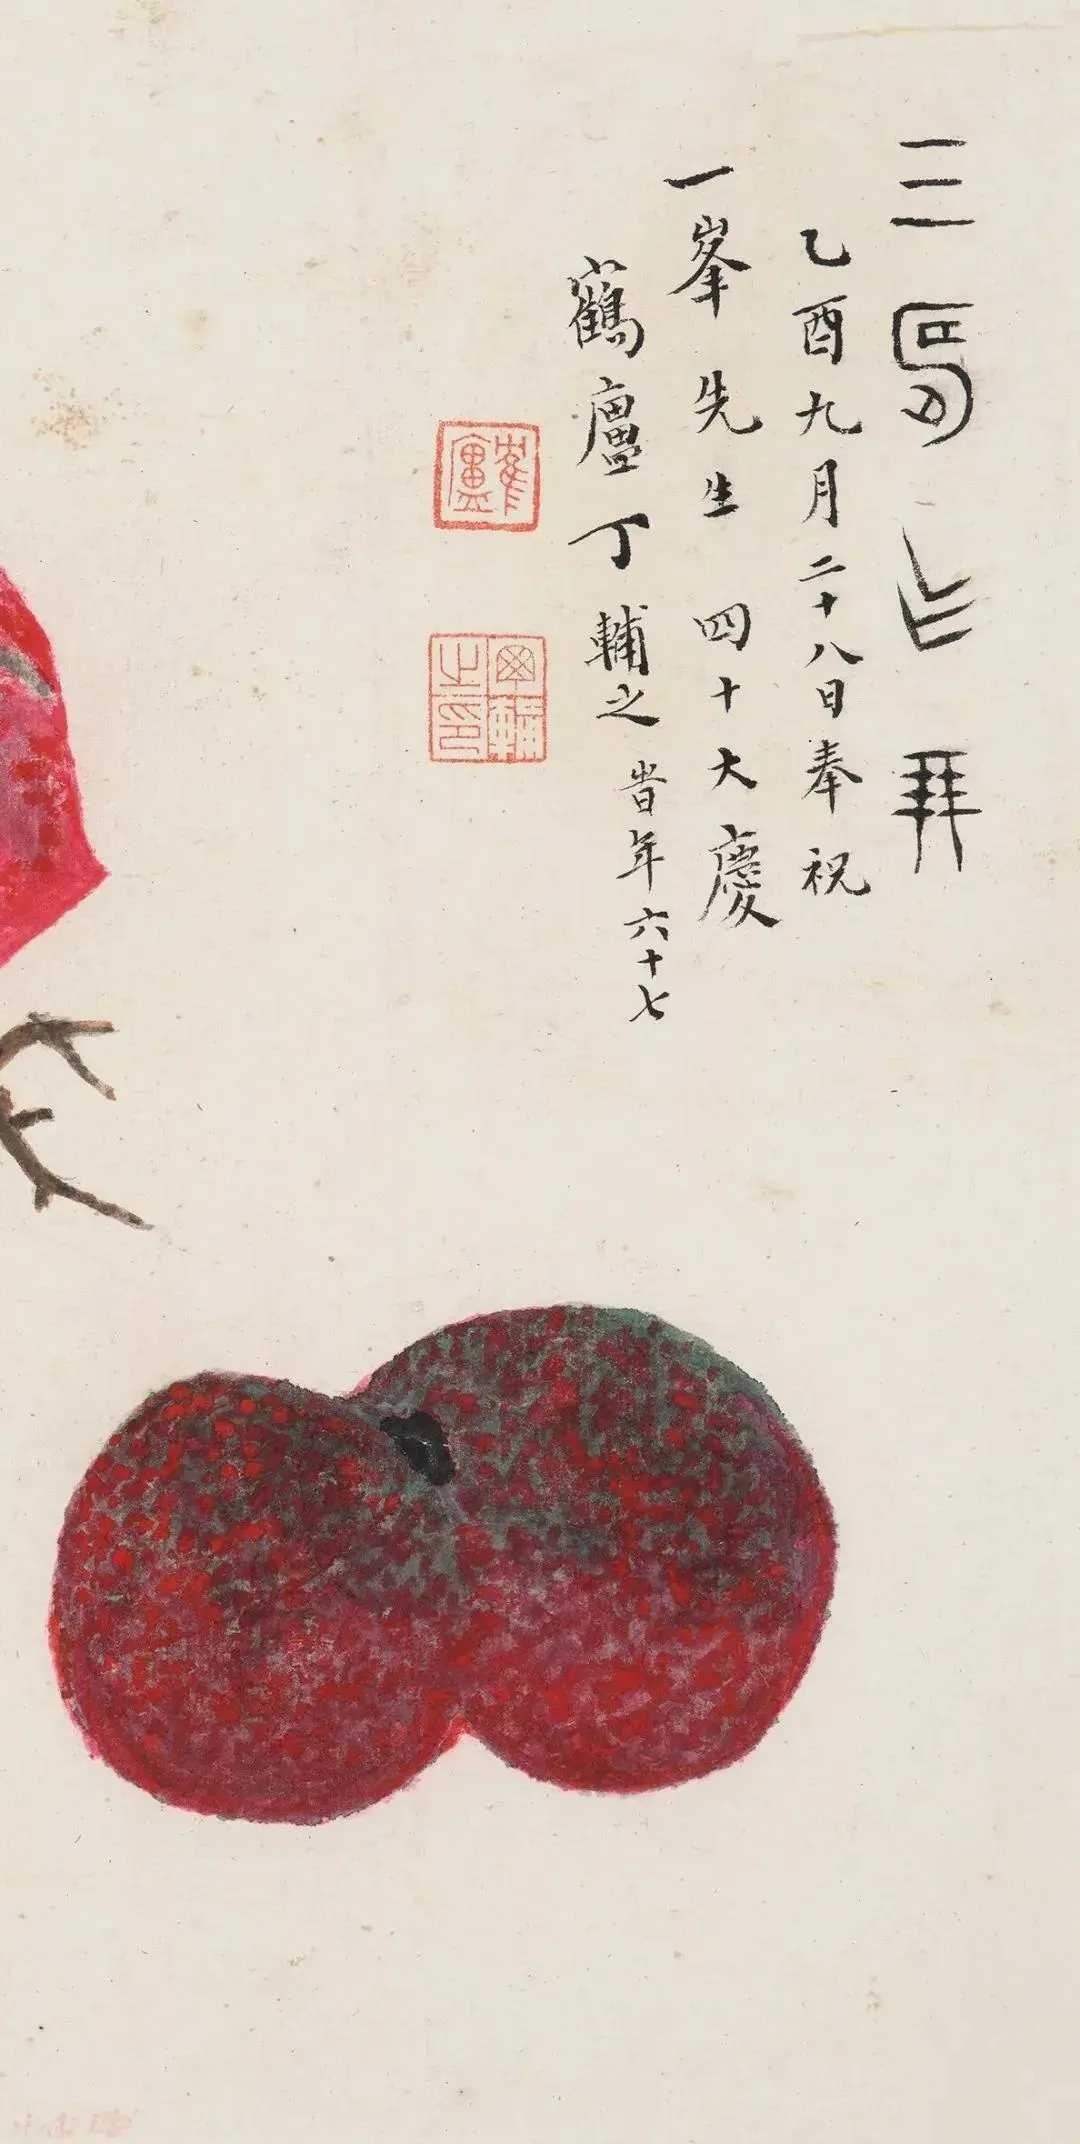 三壽作朋
乙酉九月二十八日奉祝
一峯先生四十大慶
鶴廬丁輔之旹年六十七
鶴廬
丁輔之印